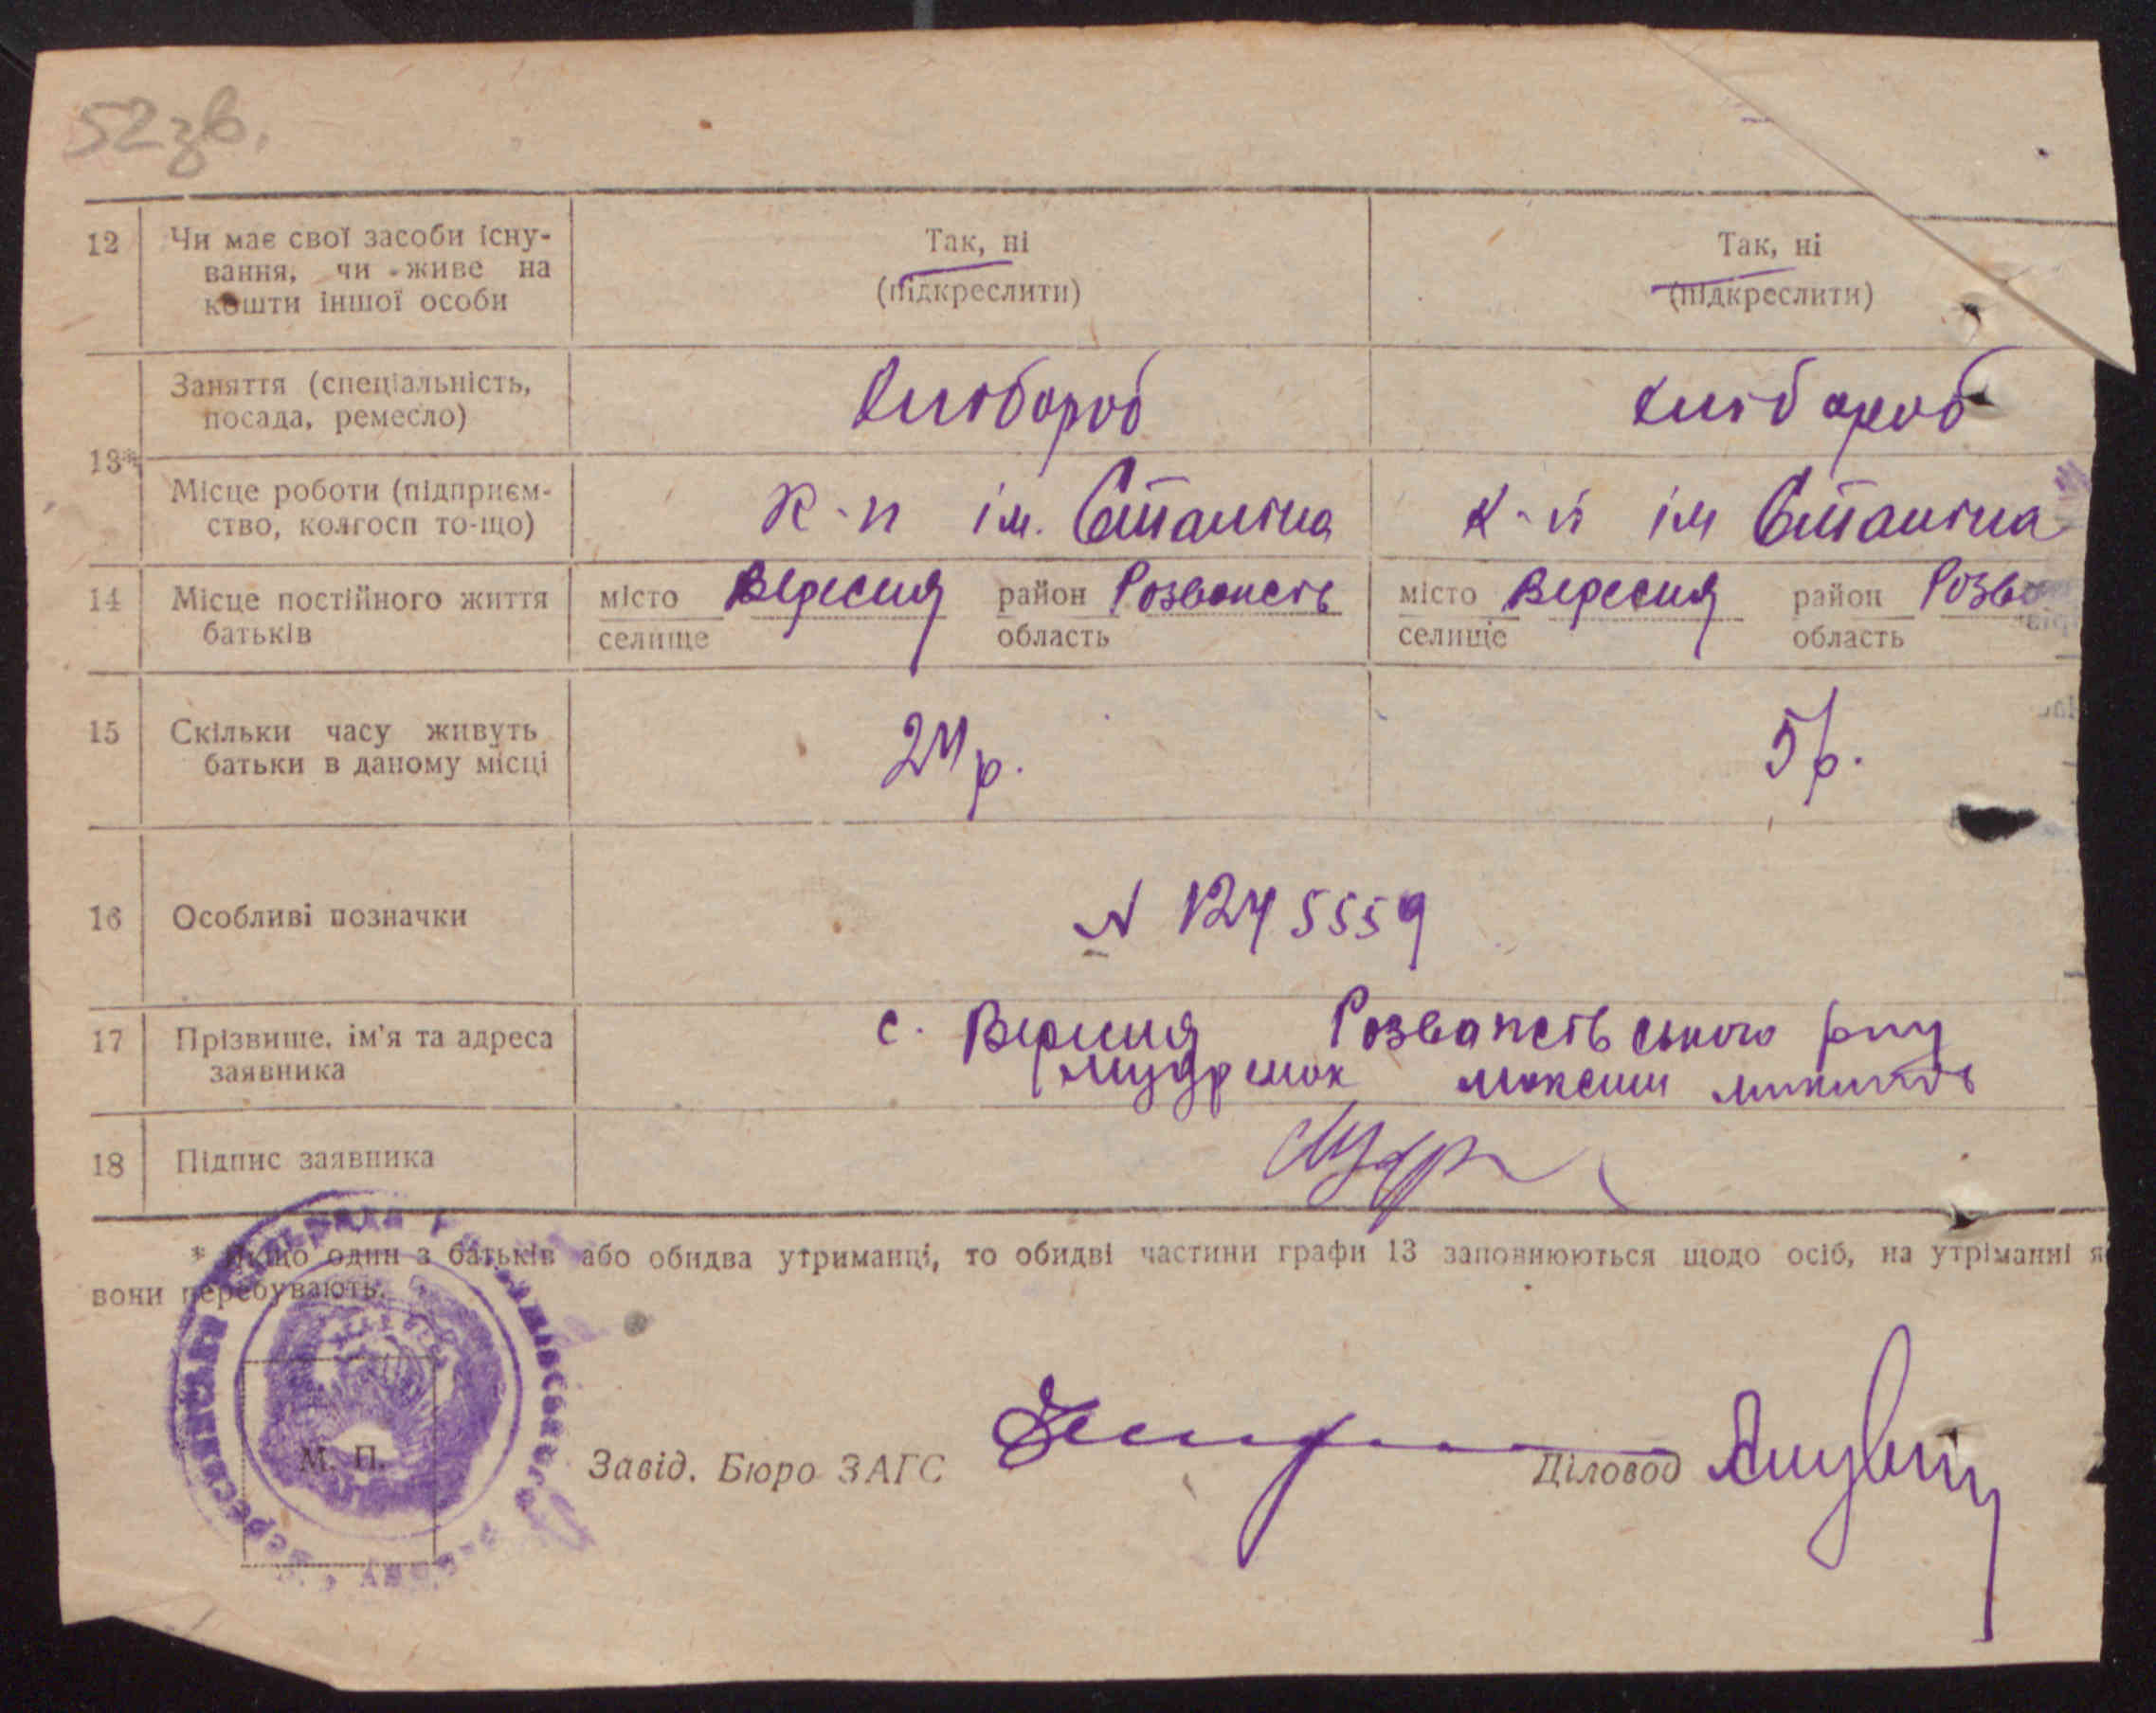 52 зв.
12 Чи має свої засоби існу-
вання, чи живе на
кошти іншої особи
Так, ні
(підкреслити)
Так, ні
(підкреслити)
13*
Заняття (спеціальність,
посада, ремесло)
Хлібороб
Хлібороб
Місце роботи (підприєм-
ство, колгосп то-що)
К-п ім. Сталіна
к-п ім Сталіна
14 Місце постійного життя
батьків
місто Вересня район Розваж
селище область
місто Вересня район Розва
селище область
15 Скільки часу живуть
батьки в даному місці
24 р.
5 р.
16 Особливі позначки
N 1245559
17 Прізвище, ім'я та адреса
заявника
с. Вересня ського р-ну
максим
18 Підпис заявника
* Якщо один з батьків або обидва утриманці, то обидві частини графи 13 заповнюються щодо осіб, на утріманні я
вони перебувають.
М. П.
Завід. Бюро ЗАГС
Діловод